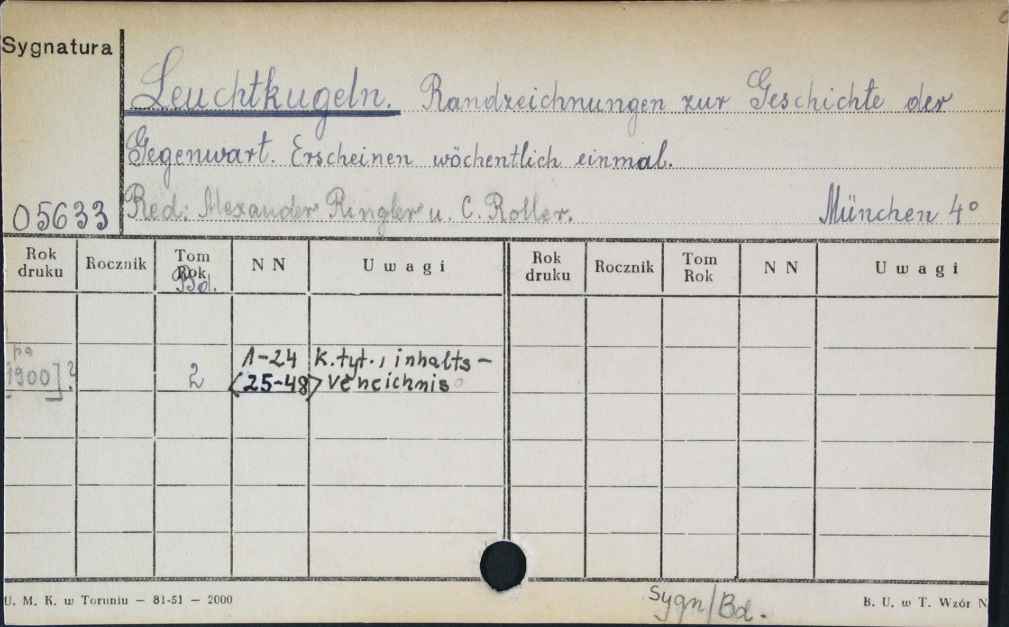 Sygnatura
Leuchtkugeln. Randzeichnungen zur Geschichte der
Gegenwart. Erscheinen wöchentlich einmal.
05633 Red: Alexander Ringler u. C. Rotter. München 4°
Rok druku Rocznik Tom Rok Bd. N N Uwagi Rok druku Rocznik Tom Rok N N Uwagi
po
1-24 K.tyt., inhalts-
[1900]? 2 (25-48) verzeichnis
Sygn/Bd.
U. M. K. w Toruniu — 81-51 — 2000 B. U. w T. Wzór N